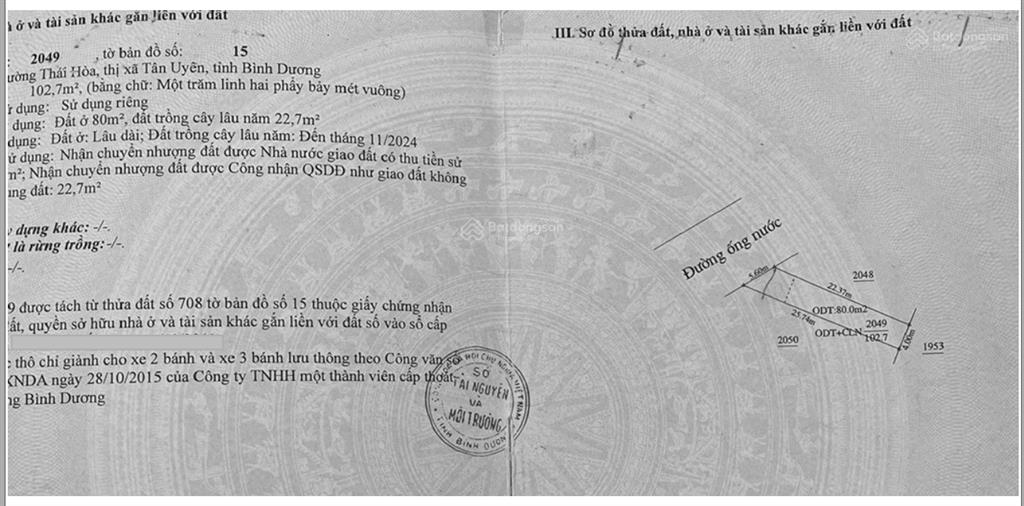 ở và tài sản khác gắn liền với đất
2049 , tờ bản đồ số: 15
Thái Hòa, thị xã Tân Uyên, tỉnh Bình Dương
102,7m², (bằng chữ: Một trăm linh hai phẩy bảy mét vuông)
dụng: Sử dụng riêng
dụng: Đất ở 80m², đất trồng cây lâu năm 22,7m²
dụng: Đất ở: Lâu dài; Đất trồng cây lâu năm: Đến tháng 11/2024
dụng: Nhận chuyển nhượng đất được Nhà nước giao đất có thu tiền sử
m²; Nhận chuyển nhượng đất được Công nhận QSDĐ như giao đất không
đất: 22,7m²
dựng khác: -/-.
là rừng trồng:-/-.
-/-.
9 được tách từ thửa đất số 708 tờ bản đồ số 15 thuộc giấy chứng nhận
quyền sở hữu nhà ở và tài sản khác gắn liền với đất số vào sổ cấp
thô chỉ giành cho xe 2 bánh và xe 3 bánh lưu thông theo Công văn
KNDA ngày 28/10/2015 của Công ty TNHH một thành viên cấp thoát
Bình Dương
SỞ
TÀI NGUYÊN
VÀ
MÔI TRƯỜNG
TỈNH BÌNH DƯƠNG
Batdongsan
III. Sơ đồ thửa đất, nhà ở và tài sản khác gắn liền với đất
Batdongsan
Đường ống nước
5.60m
22.37m
2048
ODT:80.0m2
25.74m
ODT+CLN 2049
102.7
4.00m
2050
1953